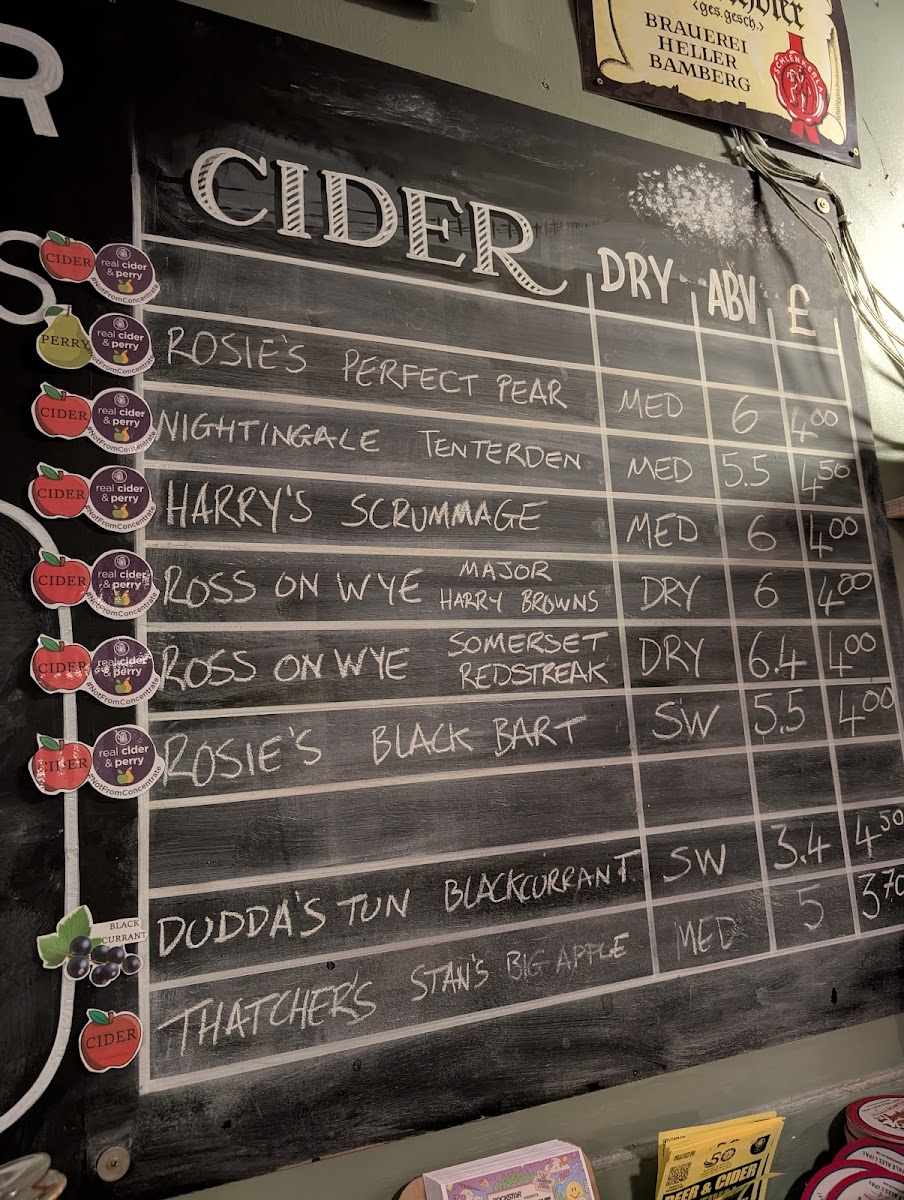 ‹ges.gesch.›
BRAUEREI
HELLER
BAMBERG
SCHLENKERLA
R
S
CIDER DRY ABV £
CIDER real cider & perry #NotFromConcentrate
PERRY real cider & perry #NotFromConcentrate ROSIE'S PERFECT PEAR MED 6 4.00
CIDER real cider & perry #NotFromConcentrate NIGHTINGALE TENTERDEN MED 5.5 4.50
CIDER real cider & perry #NotFromConcentrate HARRY'S SCRUMMAGE MED 6 4.00
CIDER real cider & perry #NotFromConcentrate ROSS ON WYE MAJOR HARRY BROWNS DRY 6 4.00
CIDER real cider & perry #NotFromConcentrate ROSS ON WYE SOMERSET REDSTREAK DRY 6.4 4.00
CIDER real cider & perry #NotFromConcentrate ROSIE'S BLACK BART SW 5.5 4.00
BLACK CURRANT DUDDA'S TUN BLACKCURRANT SW 3.4 4.50
CIDER THATCHER'S STAN'S BIG APPLE MED 5 3.70
BEER & CIDER